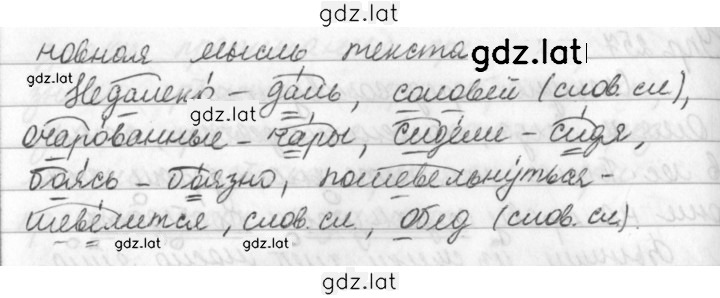 gdz.lat
новная мысль текста gdz.lat
gdz.lat
Недалеко́ – да́ль, соловей (слов. сл),
очаро́ванные – ча́ры, сиде́ли – си́дя,
боя́сь – боя́зно, пошевельну́ться –
шеве́лится, слов. сл, обед (слов. сл).
gdz.lat gdz.lat
gdz.lat